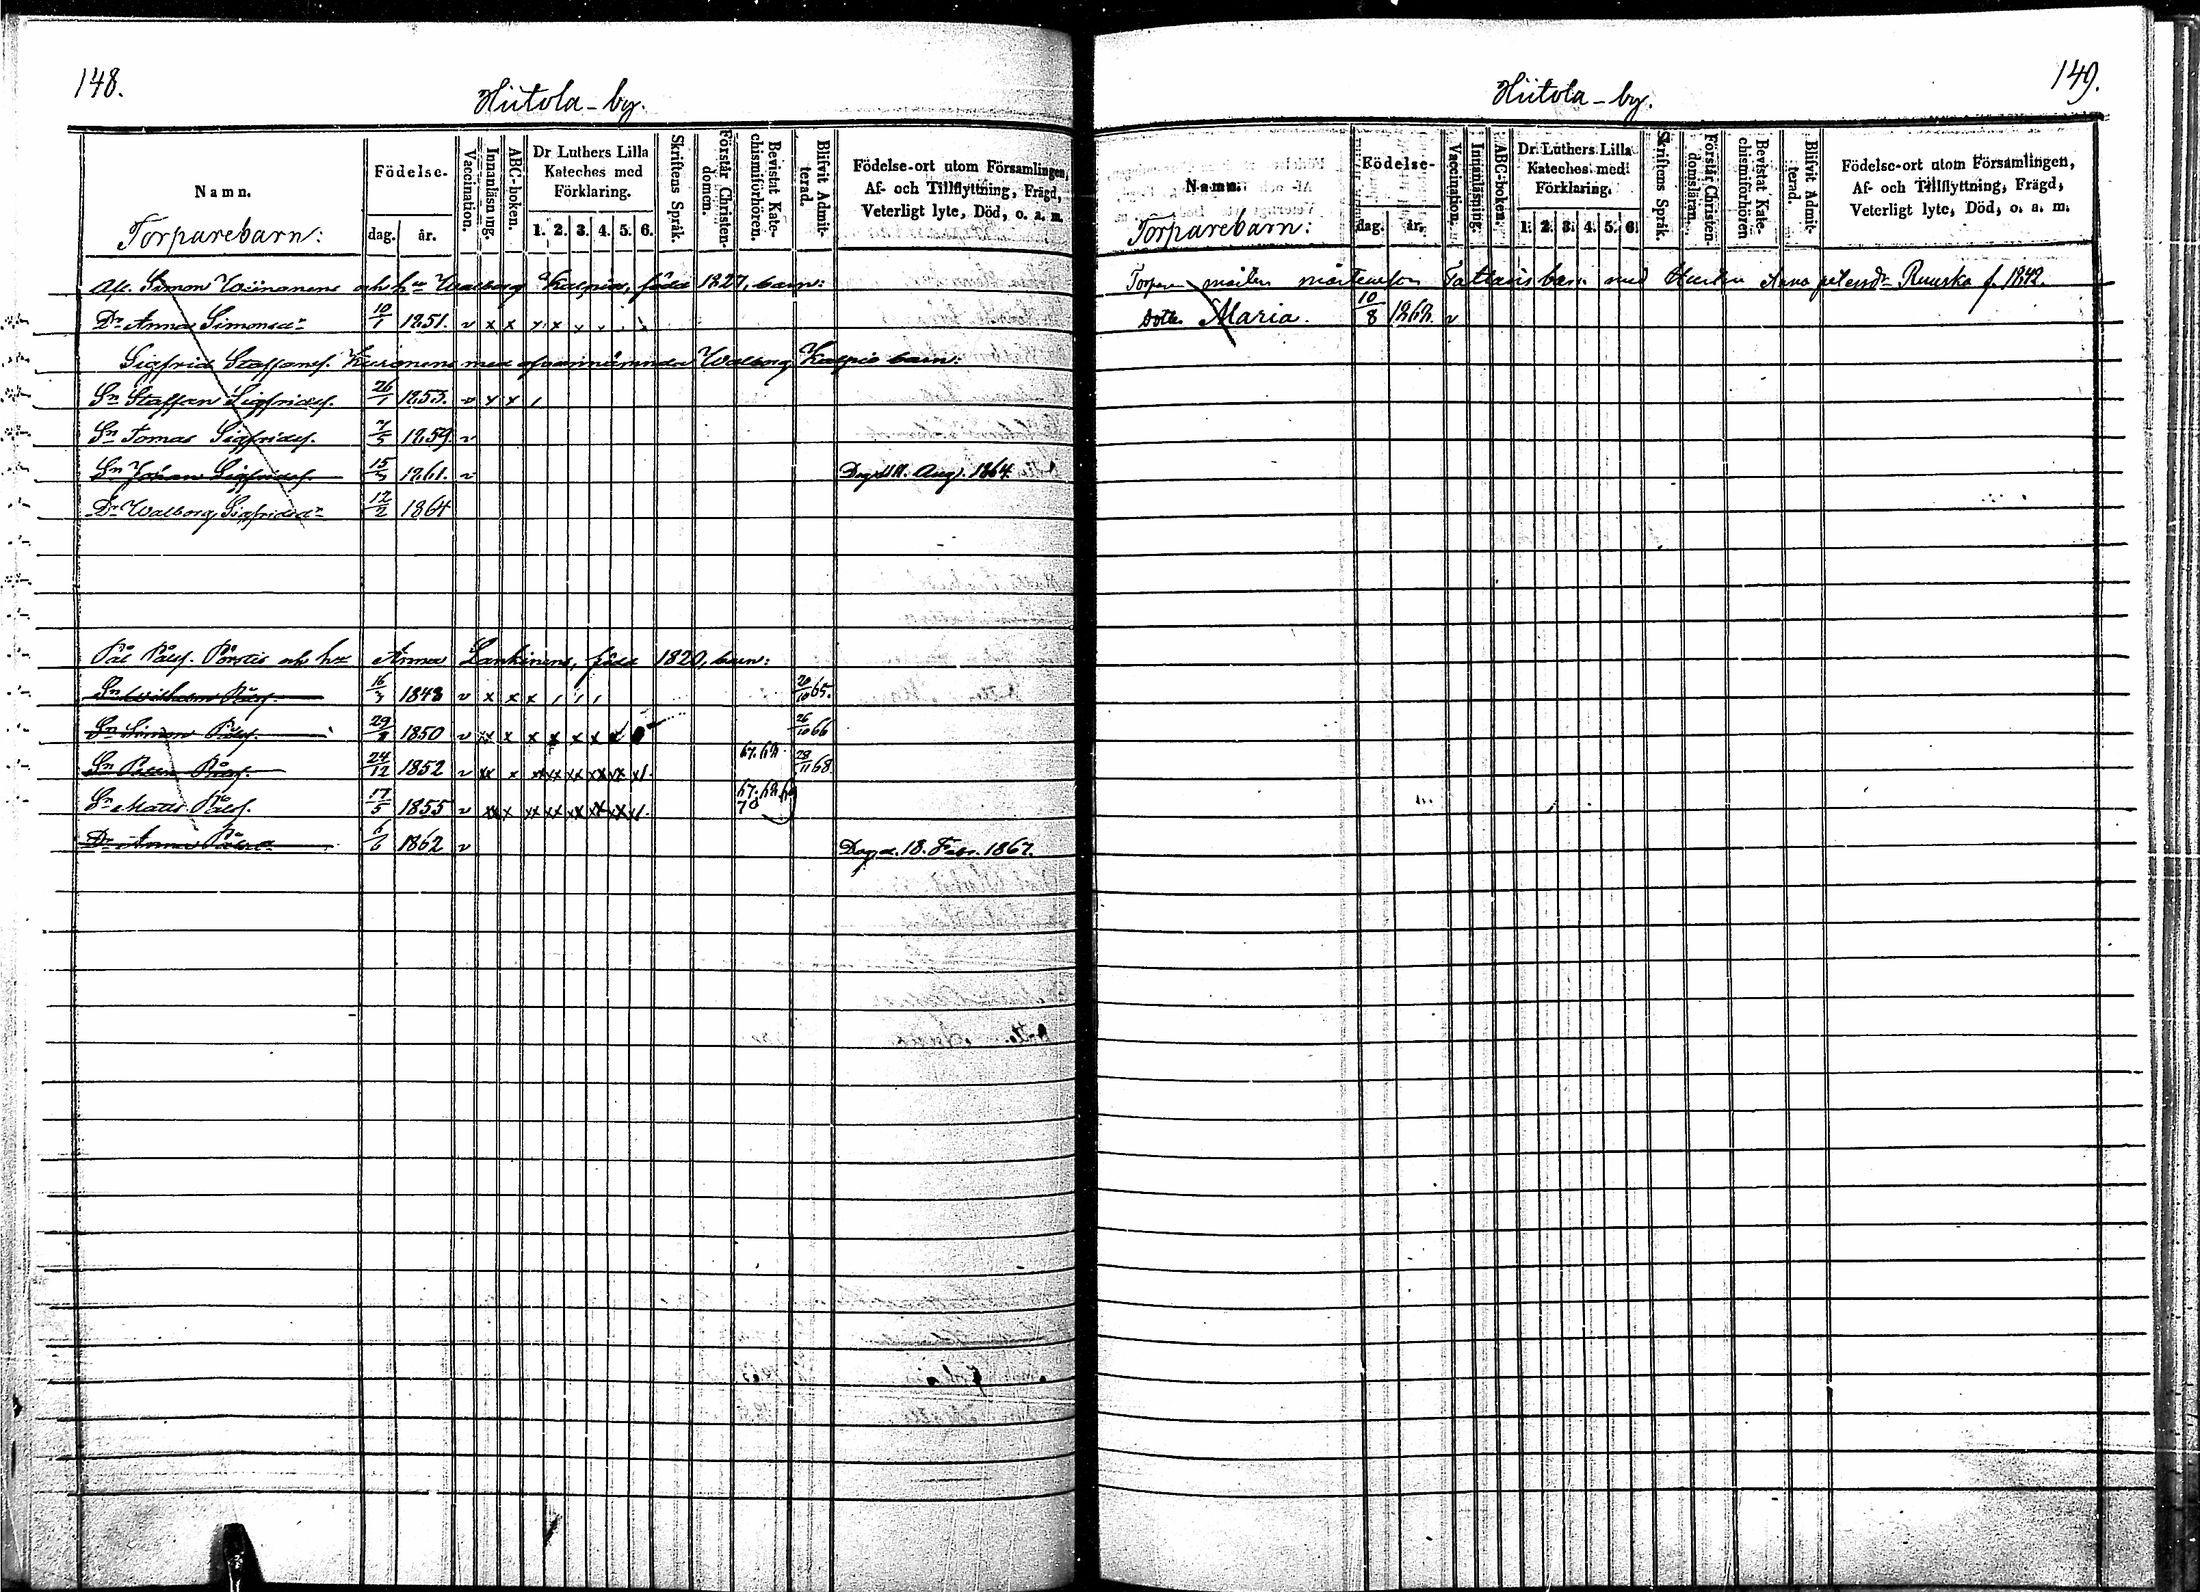 148.
Hiitola-by.
Namn.
Födelse.
Vaccination.
Innanläsning.
ABC-boken.
Dr Luthers Lilla
Kateches med
Förklaring.
Skriftens Språk.
Förstår Christen-
domen.
Bevistat Kate-
chismiförhören.
Blifvit Admit-
terad.
Födelse-ort utom Församlingen,
Af- och Tillflyttning, Frägd,
Veterligt lyte, Död, o. a. m.
Torparebarn:
dag. år.
1. 2. 3. 4. 5. 6.
Afl. Simon och hu Walborg Kalpia, född 1827, barn:
Dr Anna Simonsdr 10/1 1851. v x x
Sigfrid Staffansf. med ofvannämnda Walborg Kalpio barn:
Sn Staffan Sigfridsf. 26/1 1853. v x x
Sn Tomas Sigfridsf. 7/5 1859. v
Sn Johan Sigfridsf. 15/5 1861. v Död 11. Aug. 1864.
Dr Walborg Sigfridsdr 12/2 1864
Pål Pålsf. och hu Anna Lankinen, född 1820, barn:
Sn Wilhelm Pålsf. 1848 v x x x 20/10 65.
Sn Simon Pålsf. 1850 v x x x x x x x 26/10 66
Sn Peter Pålsf. 24/12 1852 v xx x 67. 68. 29/11 68.
Sn Matts Pålsf. 17/5 1855 v xx x 67. 68. 69
70
Dr Anna Pålsdr 1862 v Död d. 18. Febr. 1867.
149.
Hiitola-by.
Namn.
Födelse-
Vaccination.
Innanläsning.
ABC-boken.
Dr. Luthers Lilla
Kateches med
Förklaring.
Skriftens Språk.
Förstår Christen-
domsläran.
Bevistat Kate-
chismiförhören
Blifvit Admit-
terad.
Födelse-ort utom Församlingen,
Af- och Tillflyttning, Frägd,
Veterligt lyte, Död, o. a. m.
Torparebarn:
dag. år.
1. 2. 3. 4. 5. 6.
barn med Hustru Anna Ruuska f. 1842.
Dotter Maria. 10/8 1862. v